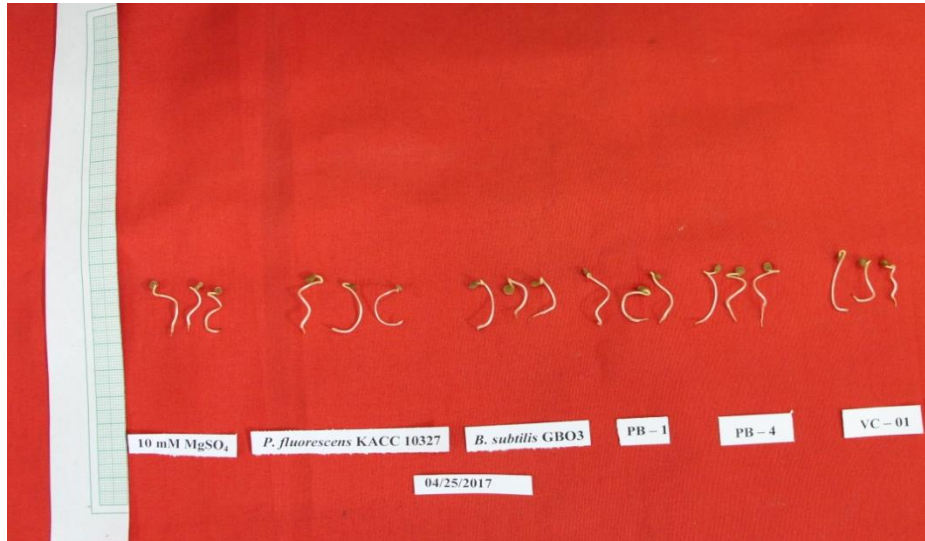 10 mM MgSO₄
P. fluorescens KACC 10327
B. subtilis GBO3
PB – 1
PB – 4
VC – 01
04/25/2017